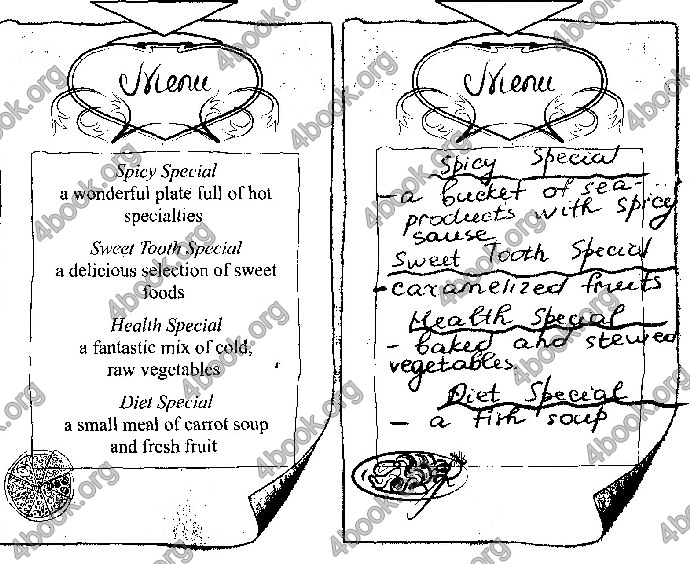 Menu
Spicy Special
a wonderful plate full of hot
specialties
Sweet Tooth Special
a delicious selection of sweet
foods
Health Special
a fantastic mix of cold,
raw vegetables
Diet Special
a small meal of carrot soup
and fresh fruit
Menu
Spicy Special
- a bucket of sea-
products with spicy
sause
Sweet Tooth Special
- caramelized fruits
Health Special
- baked and stewed
vegetables.
Diet Special
- a fish soup
4book.org